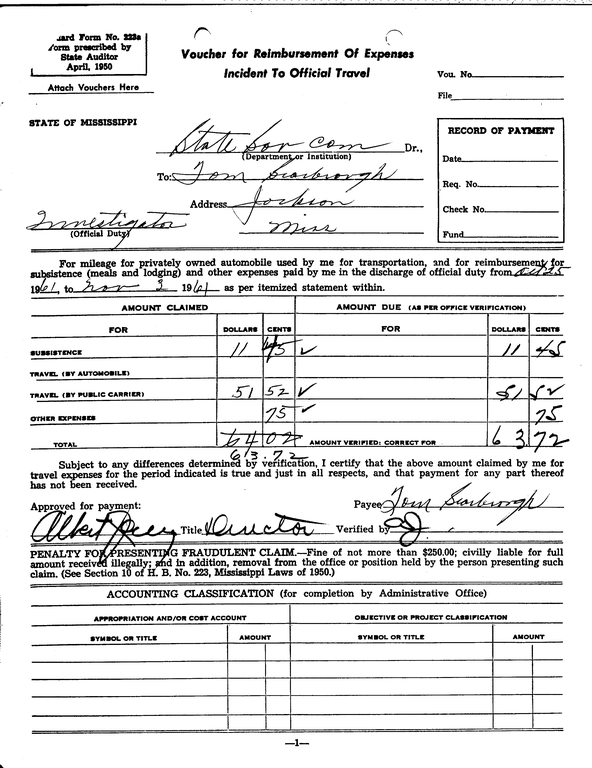 ard Form No. 223a
Form prescribed by
State Auditor
April, 1950
Attach Vouchers Here
Voucher for Reimbursement Of Expenses
Incident To Official Travel
Vou. No.
File
STATE OF MISSISSIPPI
State Sov Com Dr.,
(Department or Institution)
To: Tom Scarbrough
Address Jackson
Miss
Investigator
(Official Duty)
RECORD OF PAYMENT
Date
Req. No.
Check No.
Fund
For mileage for privately owned automobile used by me for transportation, and for reimbursement for
subsistence (meals and lodging) and other expenses paid by me in the discharge of official duty from Oct 25
1961, to Nov 3 1961 as per itemized statement within.
AMOUNT CLAIMED AMOUNT DUE (AS PER OFFICE VERIFICATION)
FOR DOLLARS CENTS FOR DOLLARS CENTS
SUBSISTENCE 11 45 ✓ 11 45
TRAVEL (BY AUTOMOBILE)
TRAVEL (BY PUBLIC CARRIER) 51 52 ✓ 51 52
OTHER EXPENSES 75 ✓ 75
TOTAL 64 02 AMOUNT VERIFIED: CORRECT FOR 63.72
63.72
Subject to any differences determined by verification, I certify that the above amount claimed by me for
travel expenses for the period indicated is true and just in all respects, and that payment for any part thereof
has not been received.
Approved for payment: Payee Tom Scarbrough
Albert Jones Title Director Verified by
PENALTY FOR PRESENTING FRAUDULENT CLAIM.—Fine of not more than $250.00; civilly liable for full
amount received illegally; and in addition, removal from the office or position held by the person presenting such
claim. (See Section 10 of H. B. No. 223, Mississippi Laws of 1950.)
ACCOUNTING CLASSIFICATION (for completion by Administrative Office)
APPROPRIATION AND/OR COST ACCOUNT OBJECTIVE OR PROJECT CLASSIFICATION
SYMBOL OR TITLE AMOUNT SYMBOL OR TITLE AMOUNT
—1—